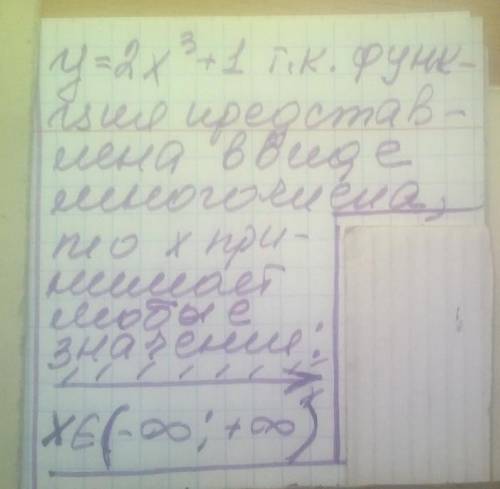 y=2x³+1 т.к. функ-
ция представ-
лена в виде
многочлена,
то x при-
нимает
любые
значения:
x
x∈(-∞;+∞)